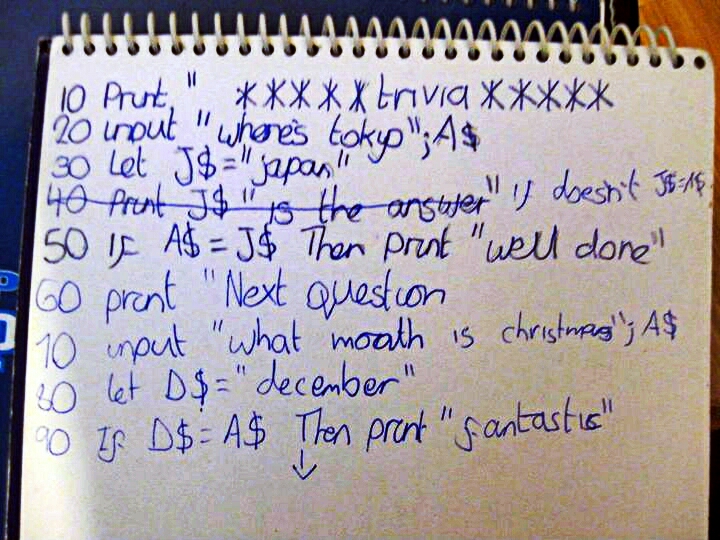 10 Print " ***** trivia *****
20 input "where's tokyo"; A$
30 Let J$ = "japan"
40 Print J$ " is the answer" if doesn't J$=A$
50 IF A$ = J$ Then print "well done"
60 print "Next Question
70 input "what month is christmas"; A$
80 let D$ = "december"
90 If D$ = A$ Then print "fantastic"
↓